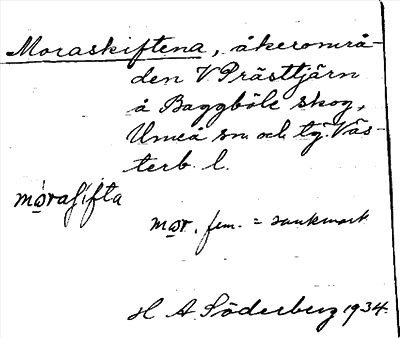 Moraskiftena, åkerområ-
den V Prästtjärn
å Baggböle skog,
Umeå sn och tg. Väs-
terb. l.
morasifta
mor, fem. = sankmark
H A Söderberg 1934.